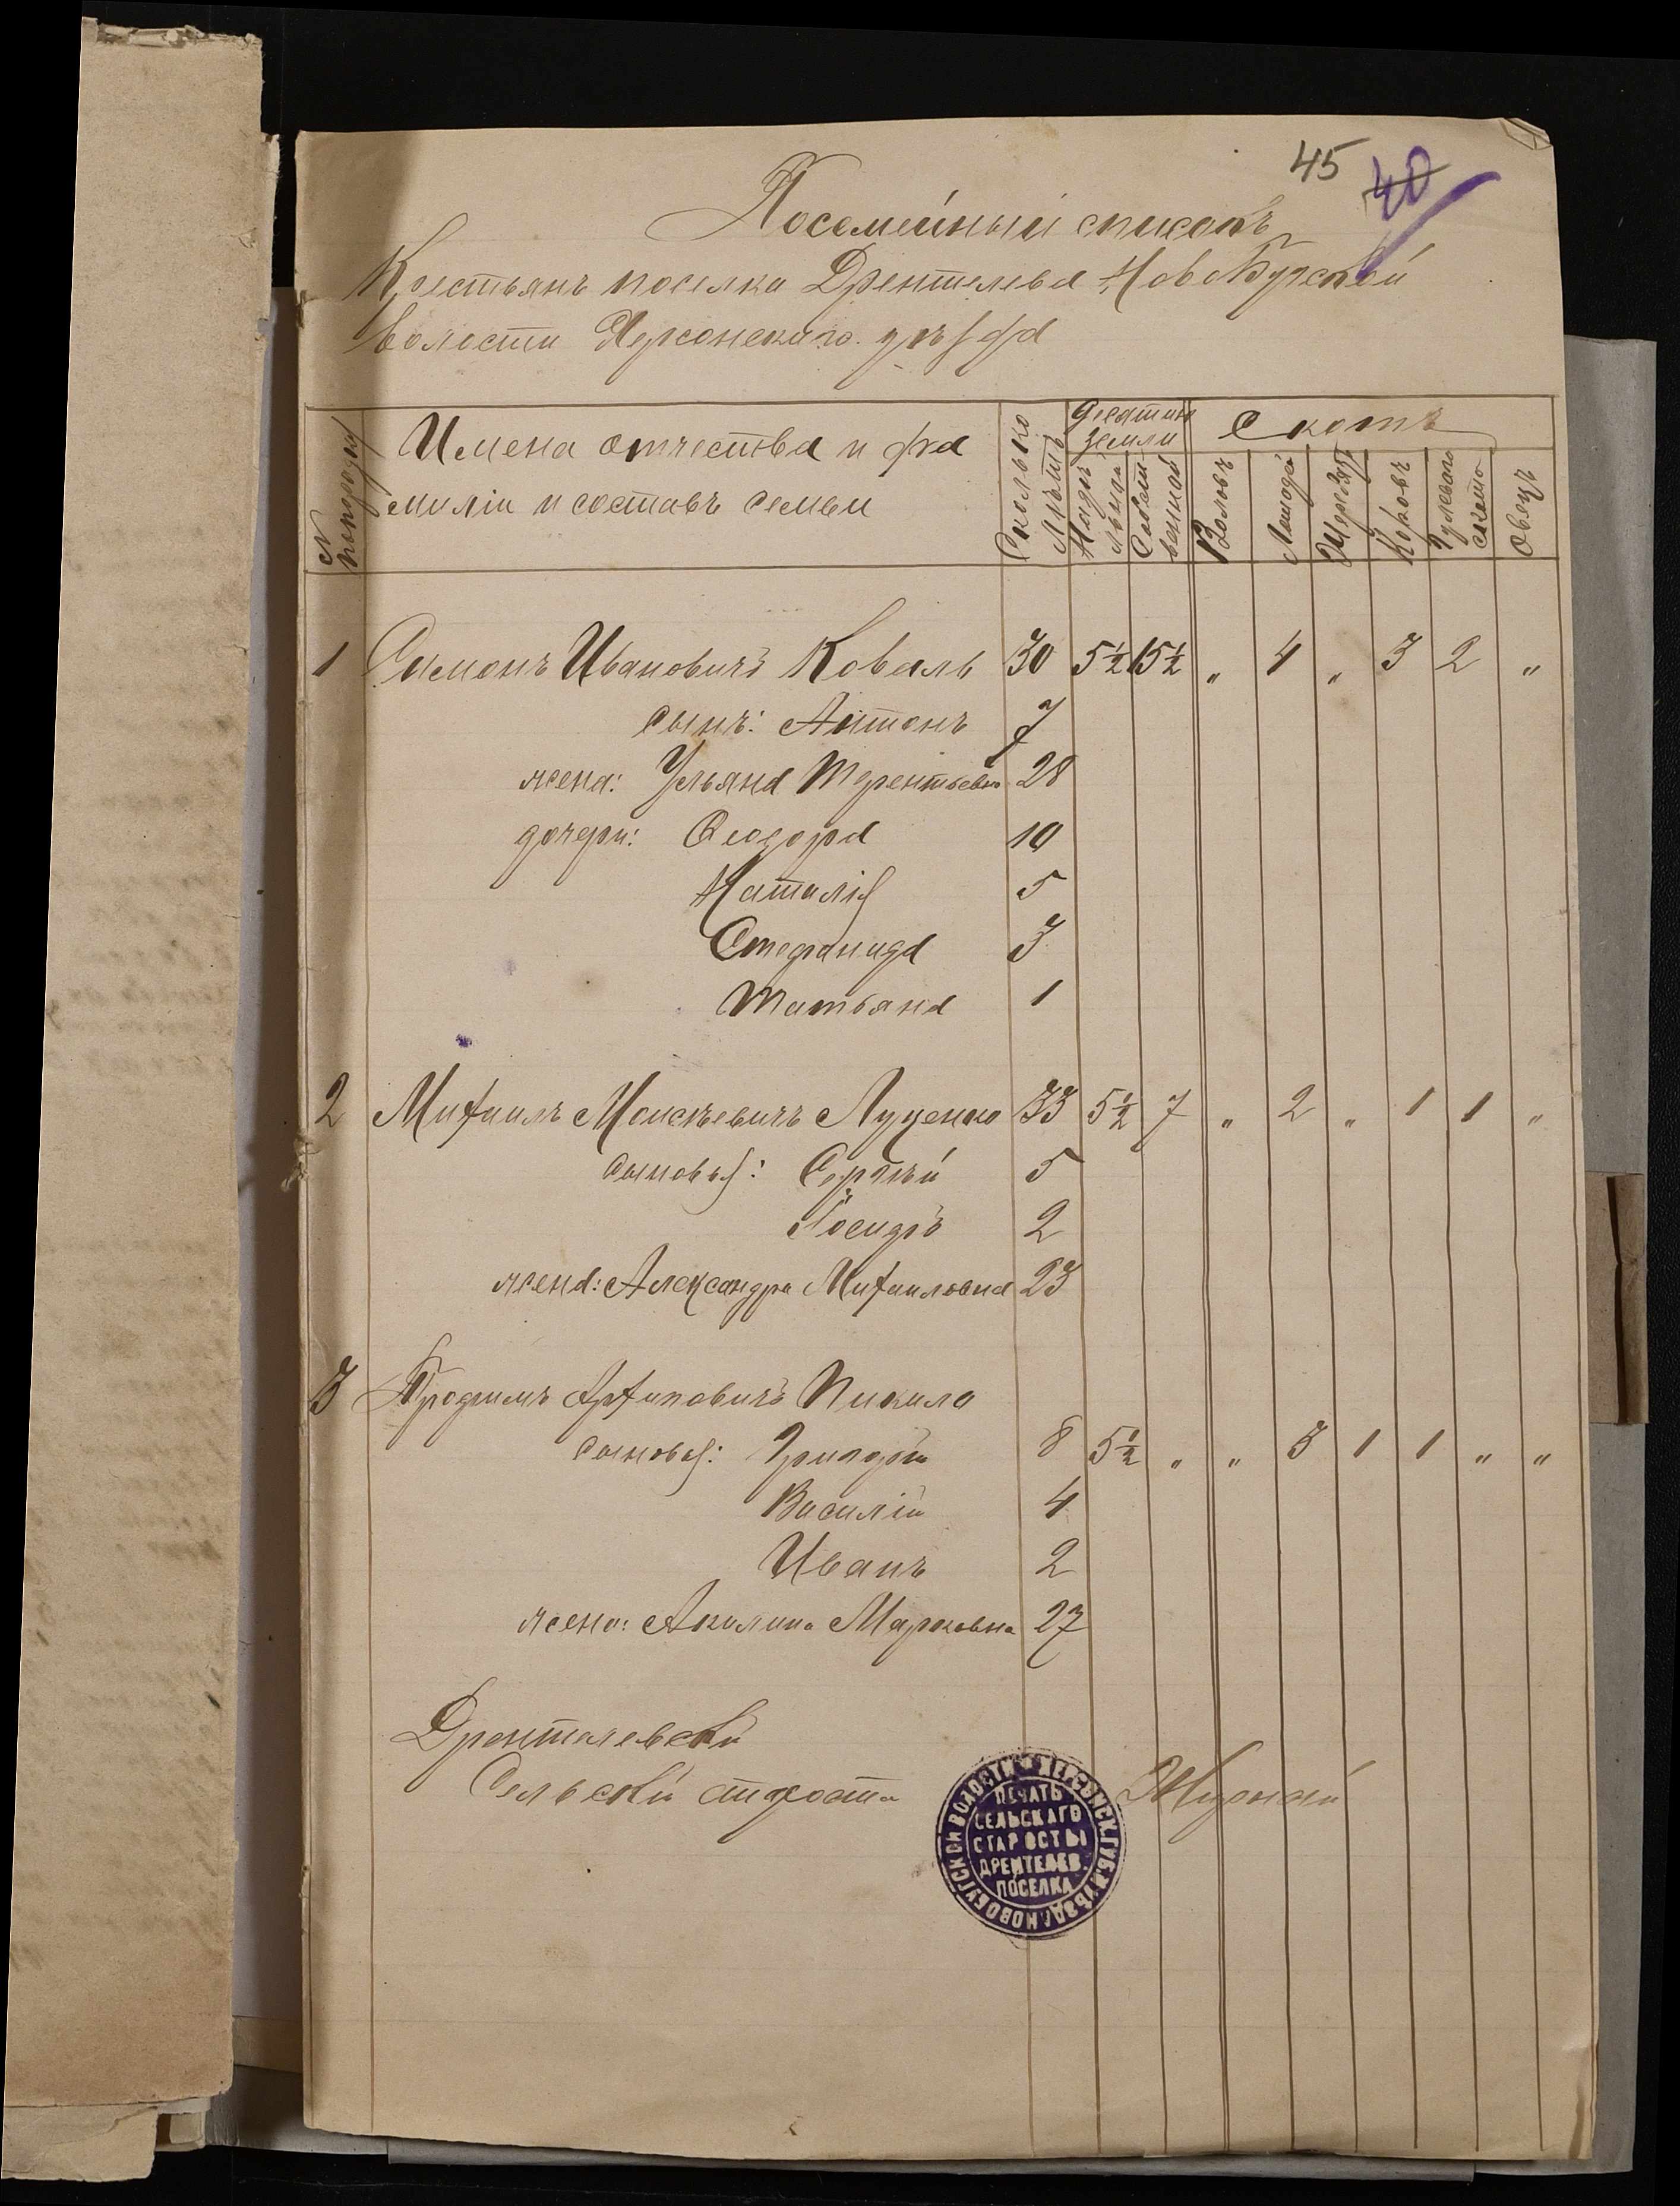 45 40
Посемейный списокъ
Крестьянъ поселка Дрентелева Новобугской
волости Херсонскаго уѣзда
№ по порядку
Имена отчества и фа
миліи и составъ семьи
Сколько лѣтъ
десятинъ земли
Надѣльной
Собственной
Скотъ
Воловъ
Лошадей
Жеребят
Коровъ
Гулеваго скота
Овецъ
1 Симонъ Ивановичъ Коваль 30 5½ 15½ „ 4 „ 3 2 „
сынъ: Антонъ 7
жена: Ульяна Терентьевна 28
дочери: Феодора 10
Наталія
5
Стефанида 3
Татьяна 1
2 Михаилъ Моисѣевичъ Луценко 33 5½ 7 „ 2 „ 1 1 „
сыновья: Сергѣй 5
Исидръ 2
жена: Александра Михаиловна 23
3 Трофимъ Архиповичъ Пикало
сыновья: Григорій 8 5½ „ „ 3 1 1 „ „
Василій 4
Иванъ 2
жена: Акилина Марковна 27
Дрентелевскій
Сельскій староста
НОВОБУГСКОЙ ВОЛОСТИ ХЕРСОНСК. ГУБ. И УѢЗДА
ПЕЧАТЬ
СЕЛЬСКАГО
СТАРОСТЫ
ДРЕНТЕЛЕВ.
ПОСЕЛКА